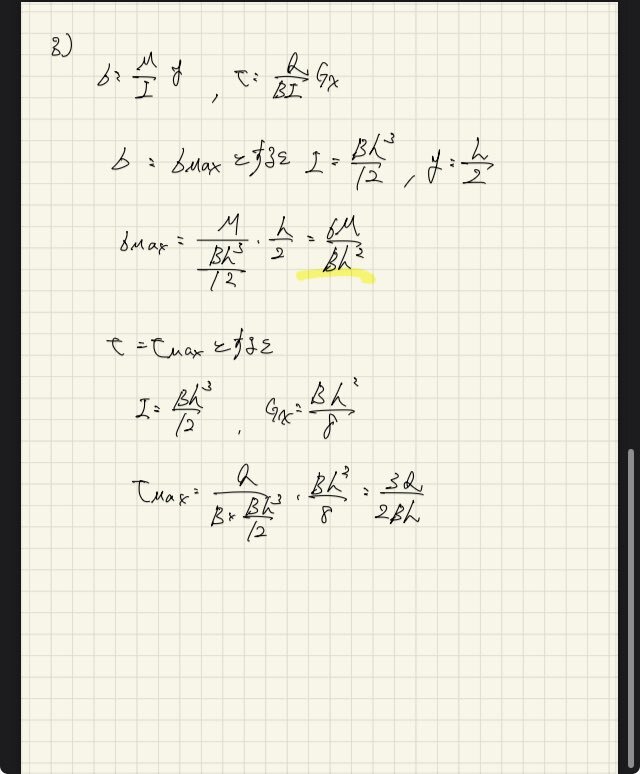 3)
σ = M/I y , τ = Q/BI Gx
σ = σmax とすると I = Bh³/12 , y = h/2
σmax = M/(Bh³/12) · h/2 = 6M/Bh²
τ = τmax とすると
I = Bh³/12 , Gx = Bh²/8
τmax = Q/(B × Bh³/12) · Bh²/8 = 3Q/2Bh